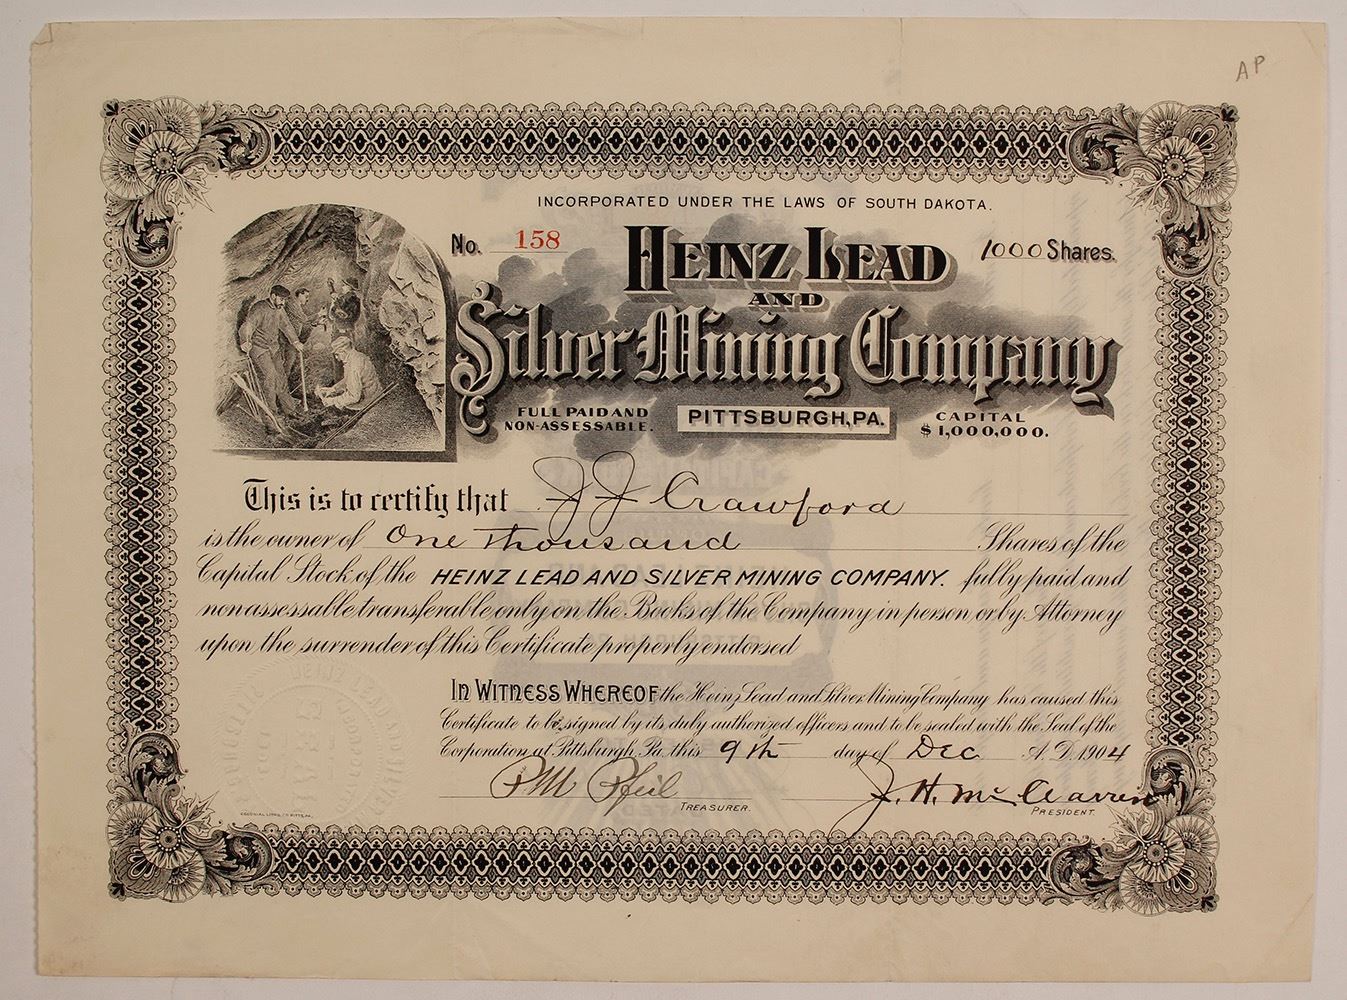 AP
INCORPORATED UNDER THE LAWS OF SOUTH DAKOTA.
No. 158
1000 Shares.
HEINZ LEAD
AND
Silver Mining Company
FULL PAID AND
NON-ASSESSABLE.
PITTSBURGH, PA.
CAPITAL
$1,000,000.
This is to certify that J J Crawford
is the owner of One Thousand Shares of the
Capital Stock of the HEINZ LEAD AND SILVER MINING COMPANY. fully paid and
non assessable transferable only on the Books of the Company in person or by Attorney
upon the surrender of this Certificate properly endorsed
IN WITNESS WHEREOF the Heinz Lead and Silver Mining Company has caused this
Certificate to be signed by its duly authorized officers and to be sealed with the Seal of the
Corporation at Pittsburgh, Pa. this 9th day of Dec A. D. 1904
P M Pfeil
TREASURER.
J. H. McClarren
PRESIDENT.